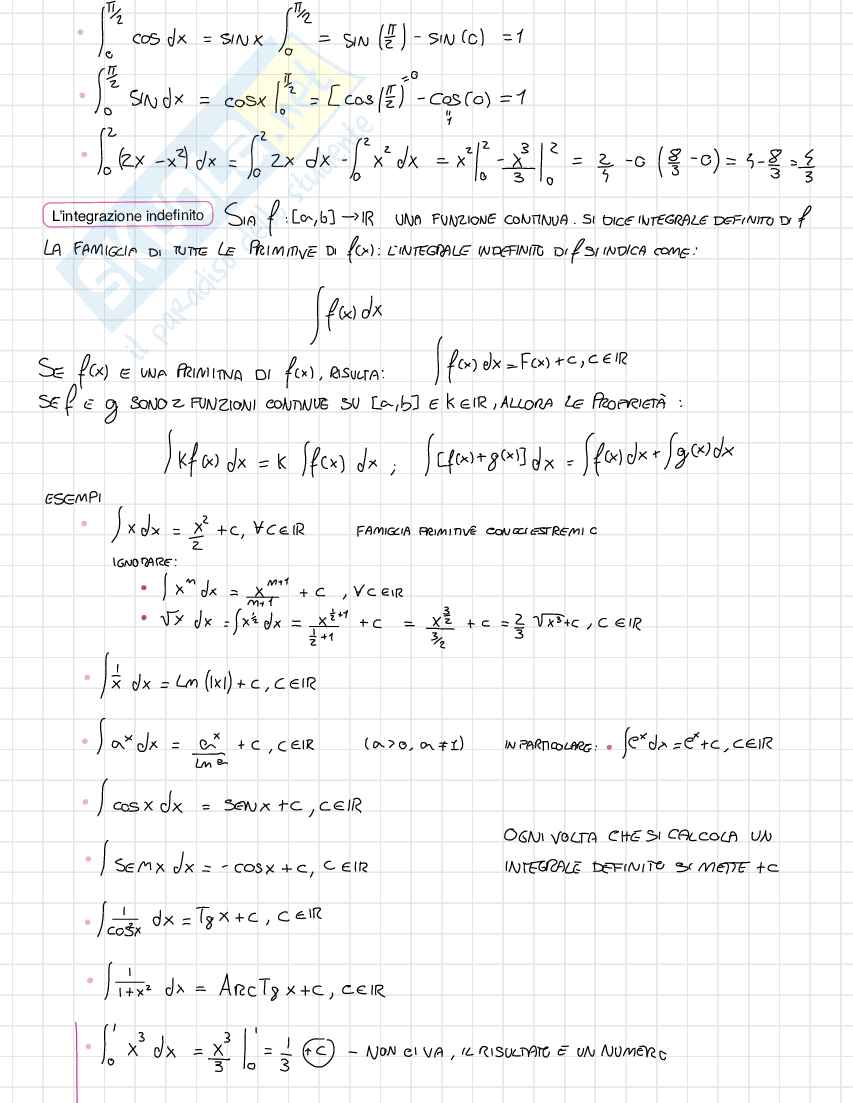 • ∫₀^{π/2} cos dx = sin x ∫₀^{π/2} = sin (π/2) - sin (0) = 1
• ∫₀^{π/2} sin dx = cosx |₀^{π/2} = [cos(π/2)^{=0} - cos(0) = 1
"1
• ∫₀² (2x - x²) dx = ∫₀² 2x dx - ∫₀² x² dx = x² |₀² - x³/3 |₀² = 2/4 - 0 (8/3 - 0) = 4 - 8/3 = 4/3
L'integrazione indefinito SIA f : [a,b] → IR UNA FUNZIONE CONTINUA. SI DICE INTEGRALE DEFINITO DI f
LA FAMIGLIA DI TUTTE LE PRIMITIVE DI f(x): L'INTEGRALE INDEFINITO DI f SI INDICA COME:
∫ f(x) dx
SE f(x) E UNA PRIMITIVA DI f(x), RISULTA: ∫ f(x) dx = F(x) + c, c ∈ IR
SE f E g SONO 2 FUNZIONI CONTINUE SU [a,b] E K ∈ IR, ALLORA LE PROPRIETÀ :
∫ K f(x) dx = K ∫ f(x) dx ; ∫ [f(x) + g(x)] dx = ∫ f(x) dx + ∫ g(x) dx
ESEMPI
• ∫ x dx = x²/2 + c, ∀ c ∈ IR FAMIGLIA PRIMITIVE CON GLI ESTREMI C
• ∫ xⁿ dx = x^{n+1}/n+1 + c , ∀ c ∈ IR
• √x dx = ∫ x^{1/2} dx = x^{1/2+1}/(1/2+1) + c = x^{3/2}/(3/2) + c = 2/3 √x³ + c , c ∈ IR
• ∫ 1/x dx = Ln (|x|) + c, c ∈ IR
• ∫ aˣ dx = aˣ/Ln a + c, c ∈ IR (a>0, a≠1) IN PARTICOLARE: • ∫ eˣ dx = eˣ + c, c ∈ IR
• ∫ cos x dx = SEN x + c, c ∈ IR
OGNI VOLTA CHE SI CALCOLA UN
• ∫ SEN x dx = - cos x + c, c ∈ IR INTEGRALE DEFINITO SI METTE +C
• ∫ 1/cos²x dx = Tg x + c, c ∈ IR
• ∫ 1/1+x² dx = ArcTg x + c, c ∈ IR
• ∫₀¹ x³ dx = x³/3 |₀¹ = 1/3 +c - NON CI VA, IL RISULTATO E UN NUMERO
SKUOLA.net
il paradiso dello studente